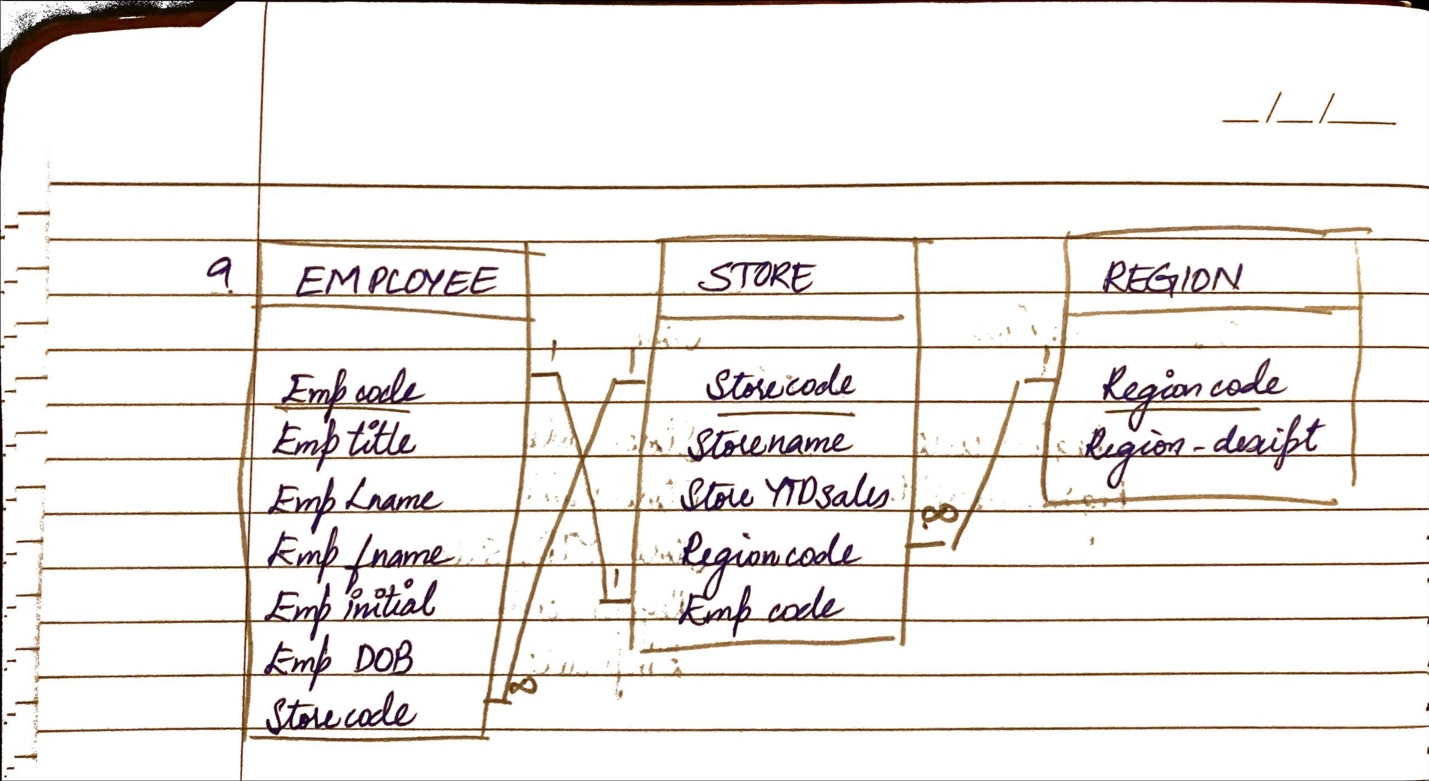 __/__/___
9. EMPLOYEE
Emp code
Emp title
Emp Lname
Emp fname
Emp initial
Emp DOB
Storecode
STORE
Storecode
Storename
Store YTDsales
Regioncode
Emp code
REGION
Region code
Region-descipt
1
1
1
1
∞
∞